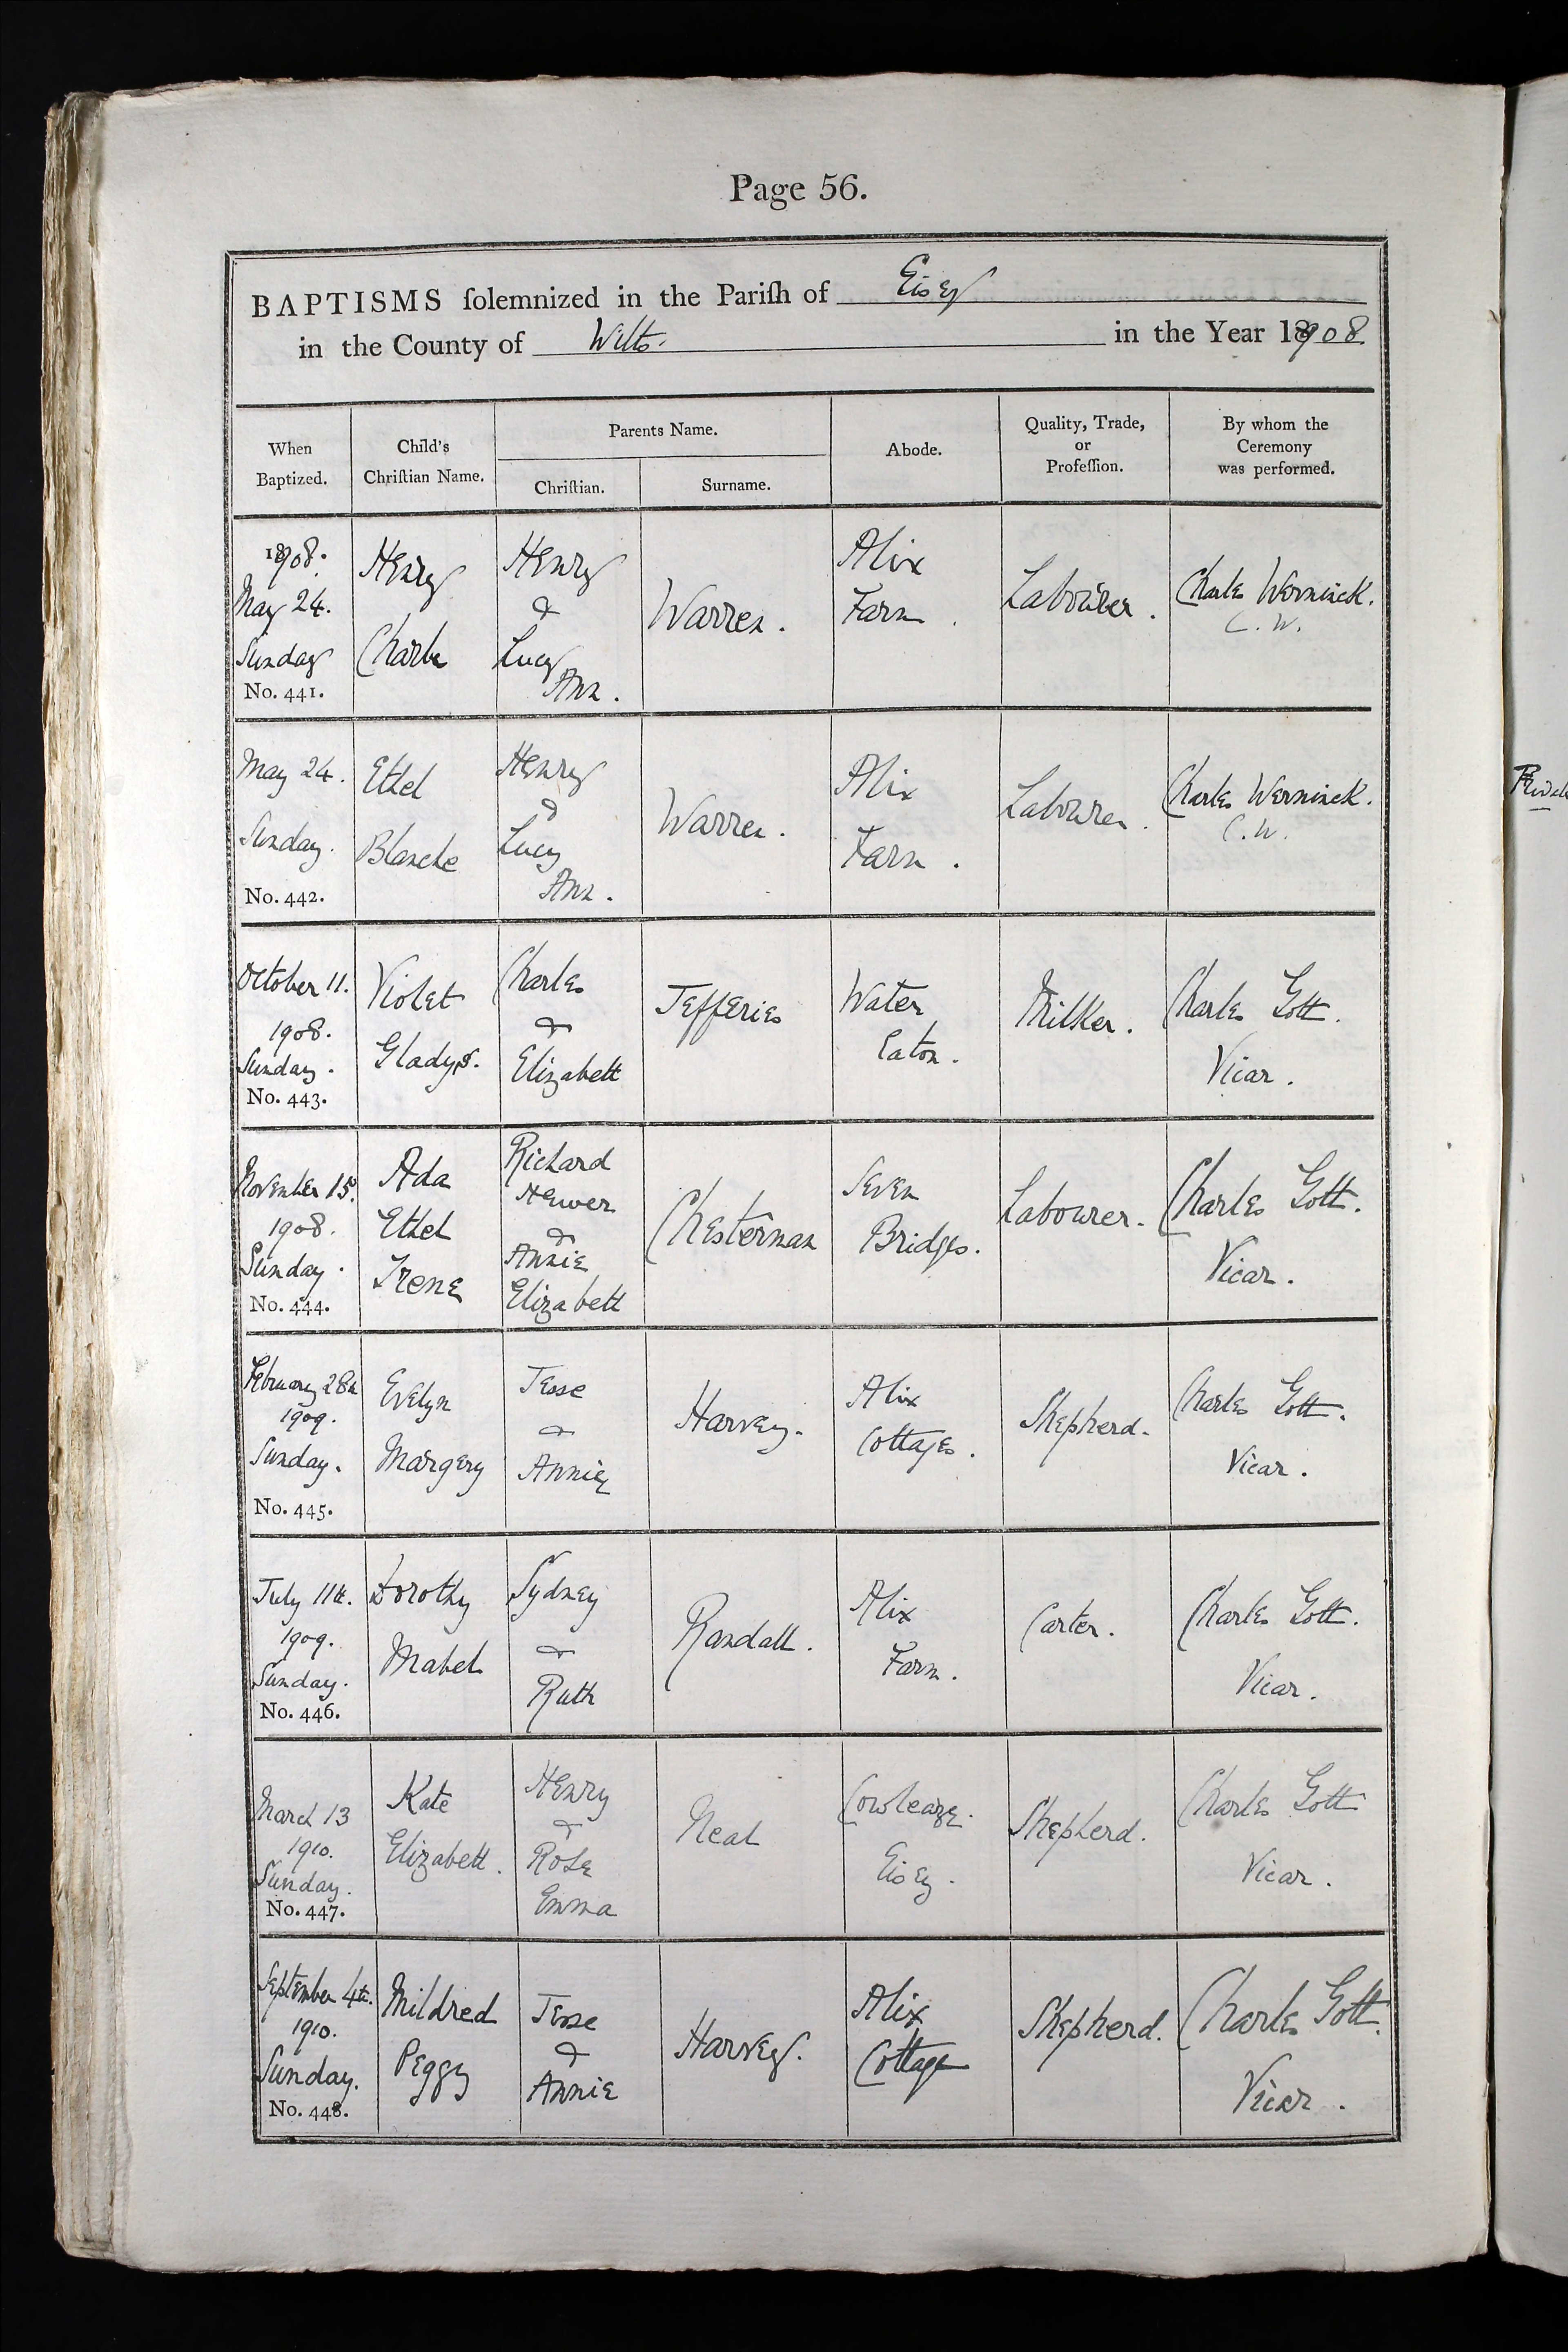 Page 56.
BAPTISMS solemnized in the Parish of Eisey
in the County of Wilts. in the Year 1908.
When Baptized. Child's Christian Name. Parents Name. Abode. Quality, Trade, or Profession. By whom the Ceremony was performed.
Christian. Surname.
1908. May 24. Sunday No. 441. Henry Charles Henry & Lucy Ann. Warren. Alix Farm. Labourer. Charles Werninck. C. W.
May 24. Sunday. No. 442. Ethel Blanche Henry & Lucy Ann. Warren. Alix Farm. Labourer. Charles Werninck. C. W.
October 11. 1908. Sunday. No. 443. Violet Gladys. Charles & Elizabeth Jefferies Water Eaton. Milker. Charles Gott. Vicar.
November 15. 1908. Sunday. No. 444. Ada Ethel Irene Richard Hewer & Annie Elizabeth Chesterman Seven Bridges. Labourer. Charles Gott. Vicar.
February 28th 1909. Sunday. No. 445. Evelyn Margery Jesse & Annie Harvey. Alix Cottages. Shepherd. Charles Gott. Vicar.
July 11th. 1909. Sunday. No. 446. Dorothy Mabel Sydney & Ruth Randall. Alix Farm. Carter. Charles Gott. Vicar.
March 13 1910. Sunday. No. 447. Kate Elizabeth. Henry & Rose Emma Neal Cowleaze. Eisey. Shepherd. Charles Gott Vicar.
September 4th. 1910. Sunday. No. 448. Mildred Peggy Jesse & Annie Harvey. Alix Cottage Shepherd. Charles Gott. Vicar.